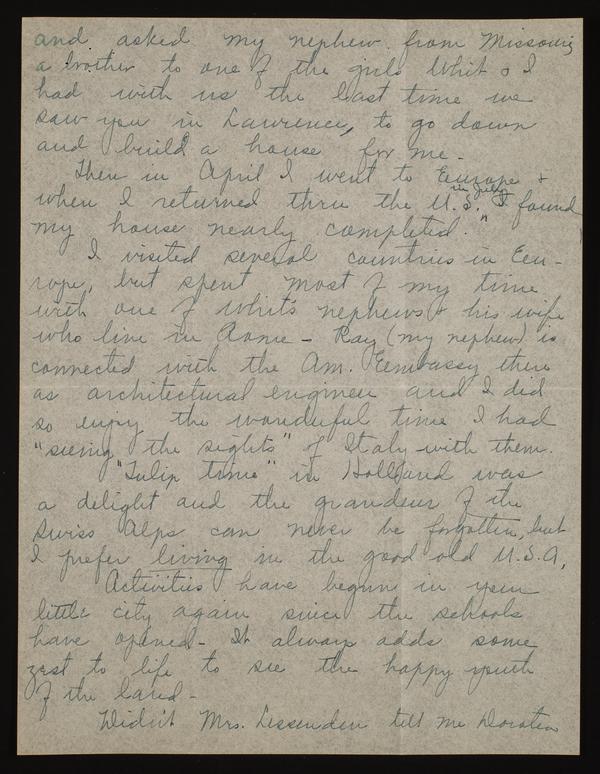 and asked my nephew from Missouri,
a brother to one of the girls Whit & I
had with us the last time we
saw you in Lawrence, to go down
and build a house for me.
Then in April I went to Europe &
when I returned thru the U.S. in July I found
my house nearly completed.
I visited several countries in Eu-
rope, but spent most of my time
with one of Whit's nephews & his wife
who live in Rome - Ray (my nephew) is
connected with the Am. Embassy there
as architectural engineer and I did
so enjoy the wonderful time I had
"seeing the sights" of Italy with them.
"Tulip time" in Holland was
a delight and the grandeur of the
Swiss Alps can never be forgotten, but
I prefer living in the good old U.S.A.
Activities have begun in your
little city again since the schools
have opened - It always adds some
zest to life to see the happy youth
of the land -
Didn't Mrs. Lessenden tell me